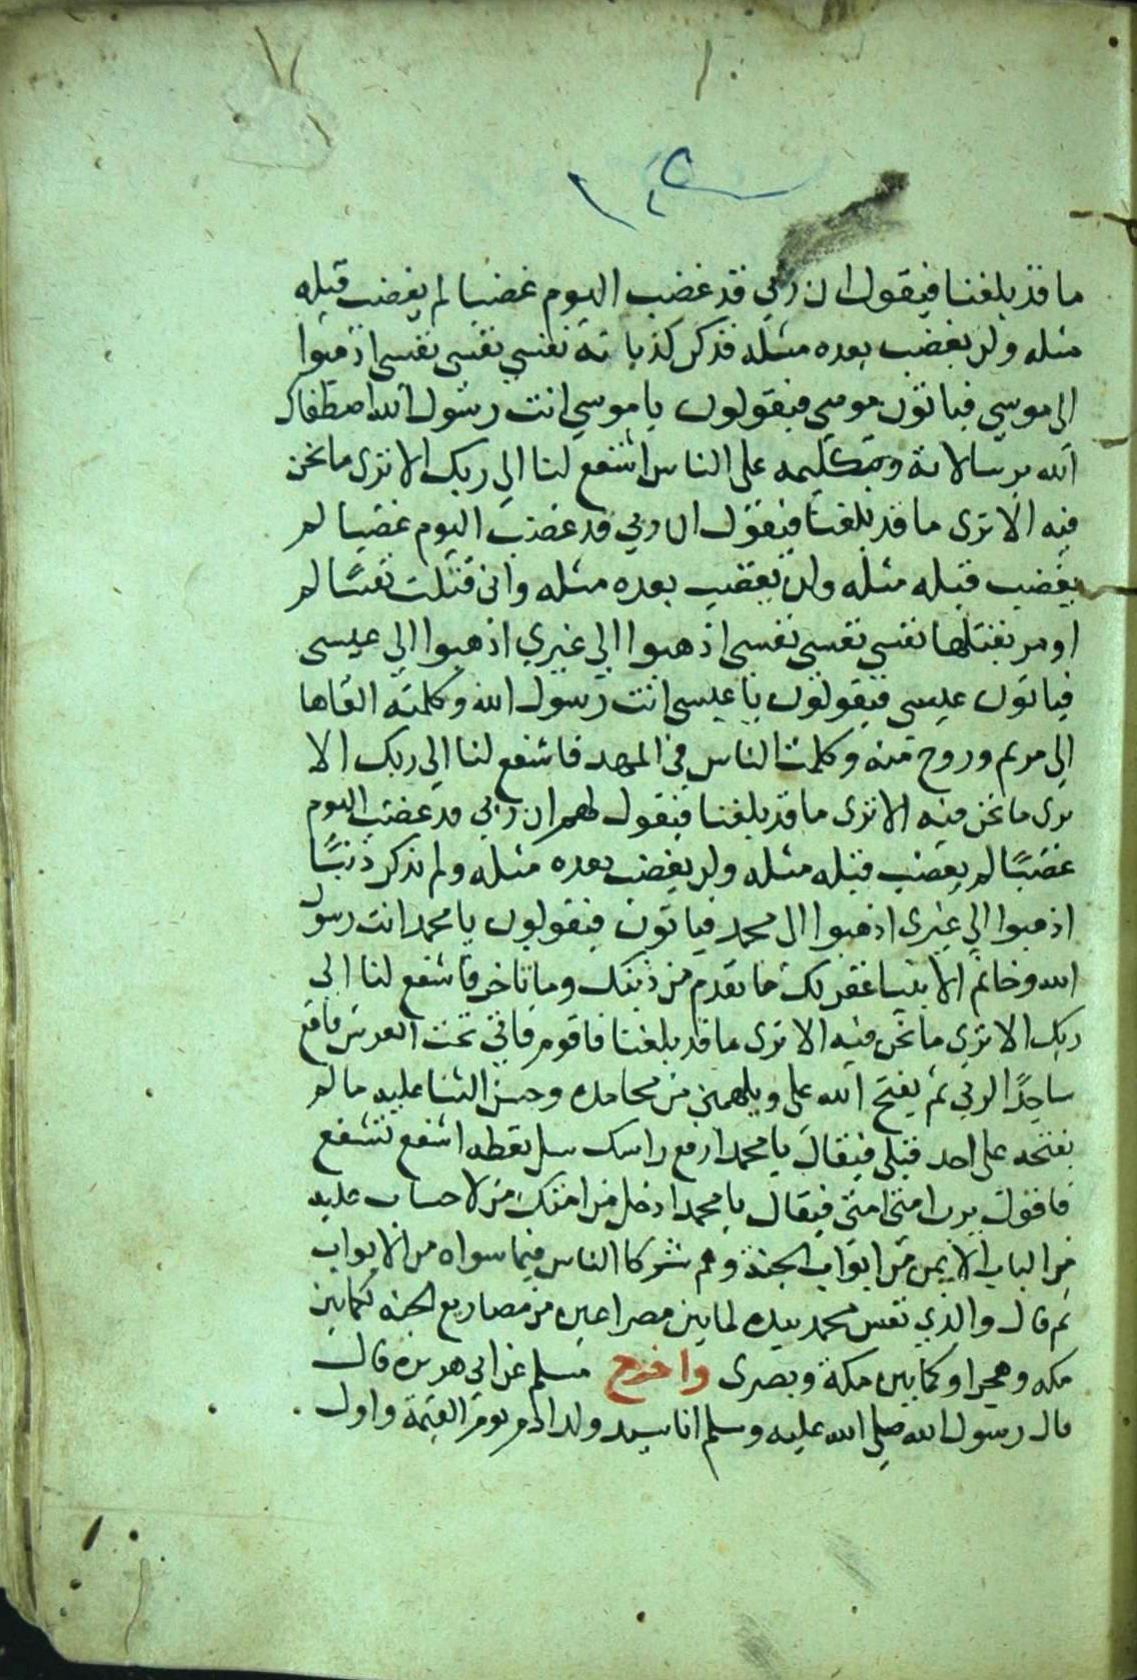 ما قد بلغنا فيقول ان ربي قد غضب اليوم غضبا لم يغضب قبله
مثله ولن يغضب بعده مثله فذكر كذباته نفسي نفسي نفسي اذهبوا
الى موسي فياتون موسي فيقولون يا موسي انت رسول الله اصطفاك
الله برسالاته وبتكليمه على الناس اشفع لنا الي ربك الا ترى ما نحن
فيه الا ترى ما قد بلغنا فيقول ان ربي قد غضب اليوم غضبا لم
يغضب قبله مثله ولن يغضب بعده مثله واني قتلت نفسًا لم
اومر بقتلها نفسي نفسي نفسي اذهبوا الي غيري اذهبوا الي عيسى
فياتون عيسى فيقولون يا عيسى انت رسول الله وكلمته القاها
الي مريم وروح منه وكلمت الناس في المهد فاشفع لنا الي ربك الا
ترى ما نحن فيه الا ترى ما قد بلغنا فيقول لهم ان ربي قد غضب اليوم
غضبًا لم يغضب قبله مثله ولن يغضب بعده مثله ولم يذكر ذنبًا
اذهبوا الي غيرى اذهبوا الى محمد فياتون فيقولون يا محمد انت رسول
الله وخاتم الانبيا غفر لك ما تقدم من ذنبك وما تاخر فاشفع لنا الى
ربك الا ترى ما نحن فيه الا ترى ما قد بلغنا فاقوم فاتي تحت العرش فاقع
ساجدًا لربي ثم يفتح الله على ويلهمني من محامده وحسن الثنا عليه ما لم
يفتحه على احد قبلى فيقال يا محمد ارفع راسك سل تعطه اشفع تشفع
فاقول يرب امتى امتى فيقال يا محمد ادخل من امتك من لا حساب عليه
من الباب الايمن من ابواب الجنة وهم شركا الناس فيما سواه من الابواب
ثم قال والذي نفس محمد بيده لما بين مصراعين من مصاريع الجنه لكما بين
مكه وهجر او كما بين مكة وبصرى واخرج مسلم عن ابي هريره قال
قال رسول الله صلى الله عليه وسلم انا سيد ولد ادم يوم القيمة واول